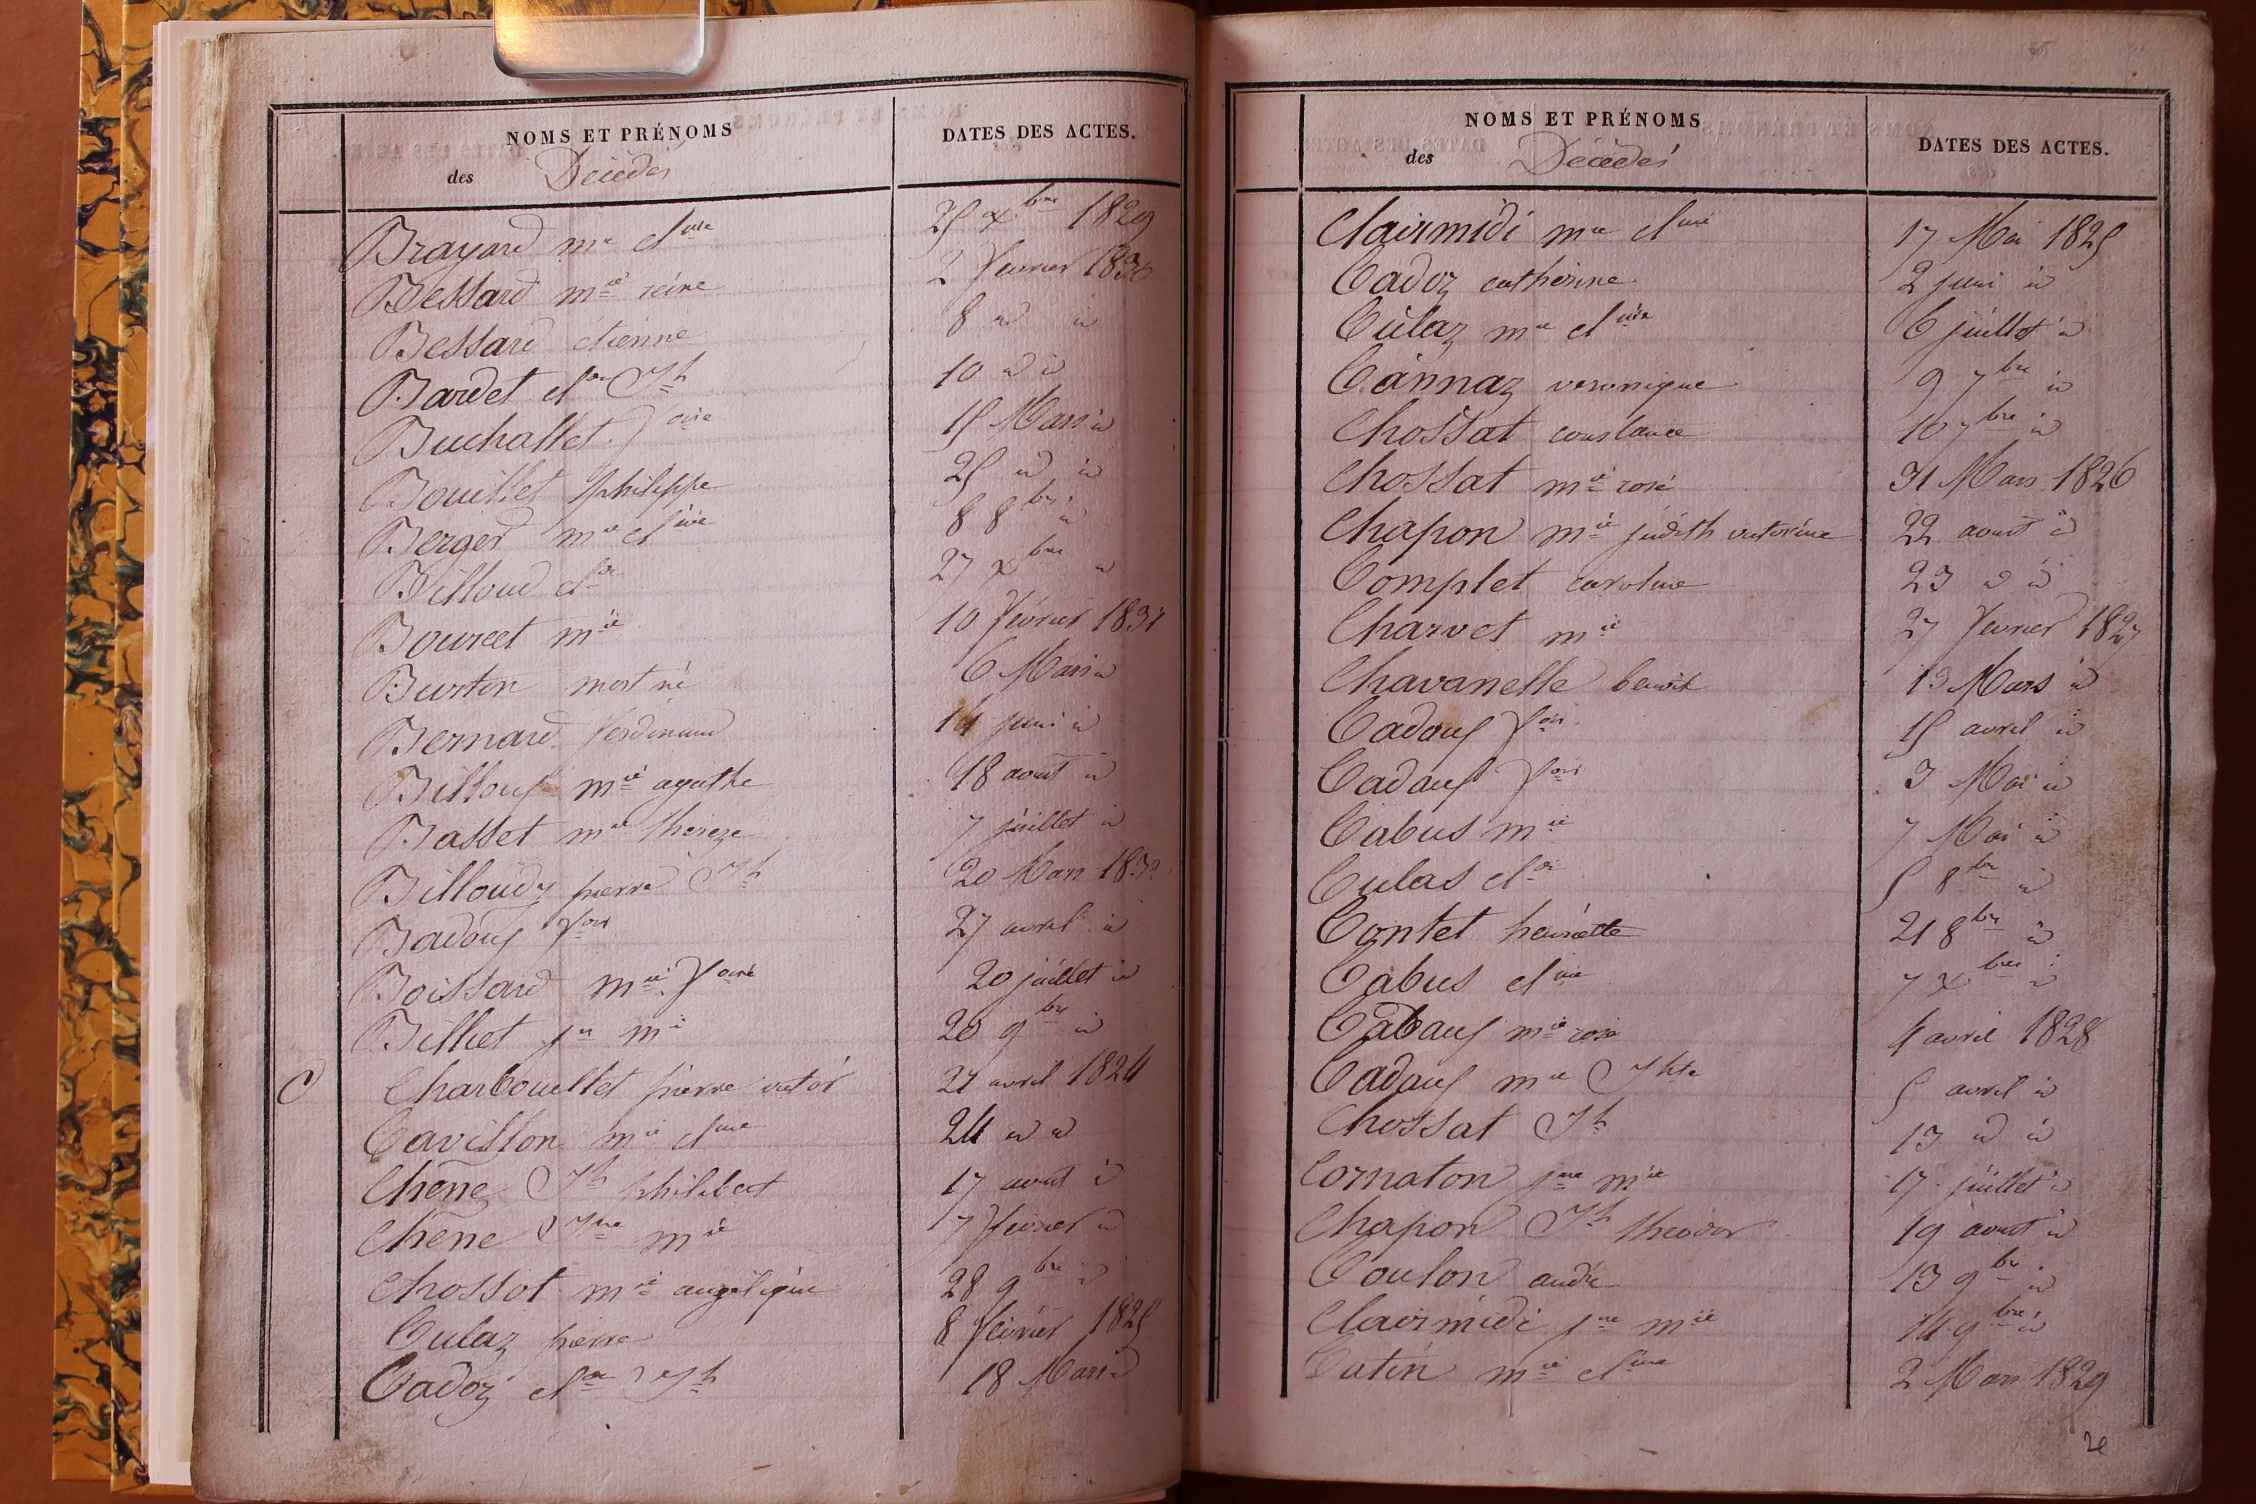 NOMS ET PRÉNOMS DATES DES ACTES.
des Décédés
Brayard mie cline 25 xbre 1829
Bessard mie reine 2 fevrier 1830
Bessard etienne 8 id id
Bardet cl Jh 10 id id
Buchallet foise 15 Mars id
Bouillet philippe 25 id id
Berger mie cline 8 8bre id
Billoud cl 27 xbre id
Bourcet mie 10 fevrier 1831
Burtin mort né 6 Mars id
Bernard ferdinand 14 juin id
Billouf mie agathe 18 aout id
Basset mie thereze 7 juillet id
Billoudy pierre Jh 20 Mars 1832
Badouf fois 27 avril id
Boissard mie foise 20 juillet id
Billiet jn mie 20 9bre id
C Charbouillet pierre victor 21 avril 1824
Cavillon mie cline 24 id id
Chene Jh philibert 17 aout id
Chene Jne mie 7 fevrier id
Chossot mie angelique 28 9bre id
Culaz pierre 8 fevrier 1825
Cadoz cl Jh 18 Mars id
NOMS ET PRÉNOMS DATES DES ACTES.
des Décédés
Clairmidi mie cline 17 Mai 1825
Cadoz catherine 2 juin id
Culaz mie cline 6 juillet id
Cannaz veronique 9 7bre id
Chossat constance 10 7bre id
Chossat mie rose 31 Mars 1826
Chapon mie judith victorine 22 aout id
Complet caroline 23 id id
Charvet mie 27 fevrier 1827
Chavanelle benoit 13 Mars id
Cadouf fois 15 avril id
Cadauf fois 3 Mai id
Cabus mie 7 Mai id
Culas cl 5 8bre id
Contet henriette 21 8bre id
Cabus cline 7 xbre id
Cabauf mie rose 4 avril 1828
Cadauf mie Jhte 5 avril id
Chossat Jh 13 id id
Cornaton jne mie 17 juillet id
Chapon Jh theodor 19 aout id
Coulon andré 13 9bre id
Clairmidi jne mie 14 9bre id
Catin mie cline 2 Mars 1829